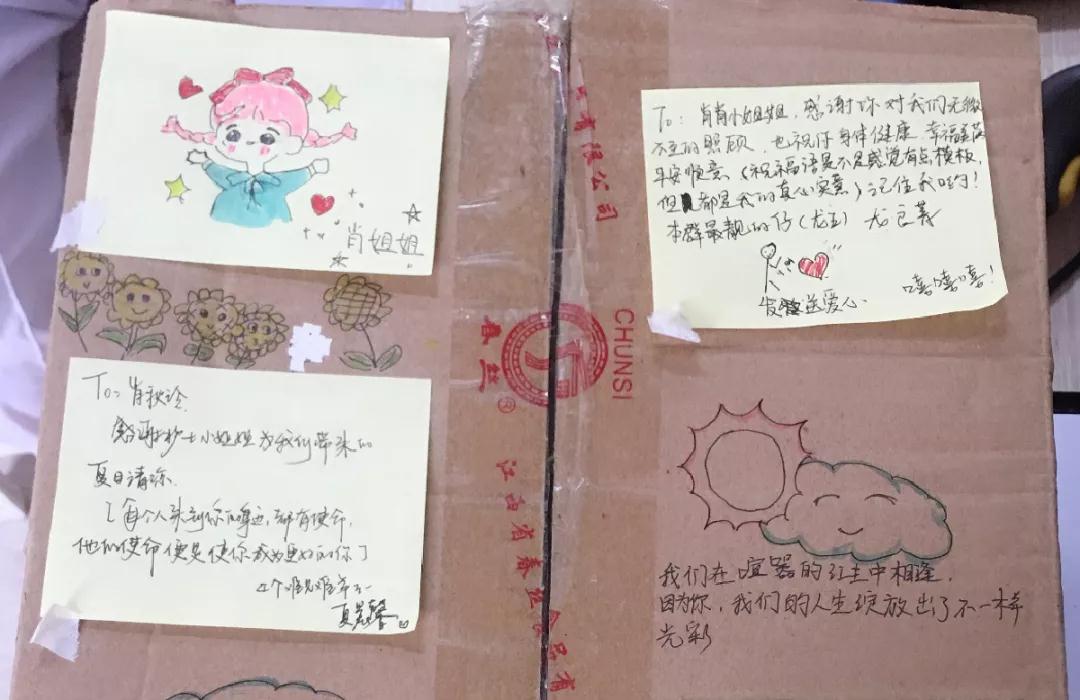 肖姐姐
To: 肖秋玲
感谢护士小姐姐为我们带来的
夏日清凉
[每个人来到你的身边,都有使命,
他们的使命便是使你成为更好的你]
To: 肖肖小姐姐,感谢你对我们无微
不至的照顾,也祝你身体健康 幸福美满
平安顺意(祝福语是不是感觉有点模板,
但都是我的真心实意)记住我哟!
本群最靓的仔
送爱心
嘻嘻嘻!
有限公司
春丝®
CHUNSI
江西省春丝食品有
我们在喧嚣的红尘中相逢,
因为你,我们的人生绽放出了不一样
光彩